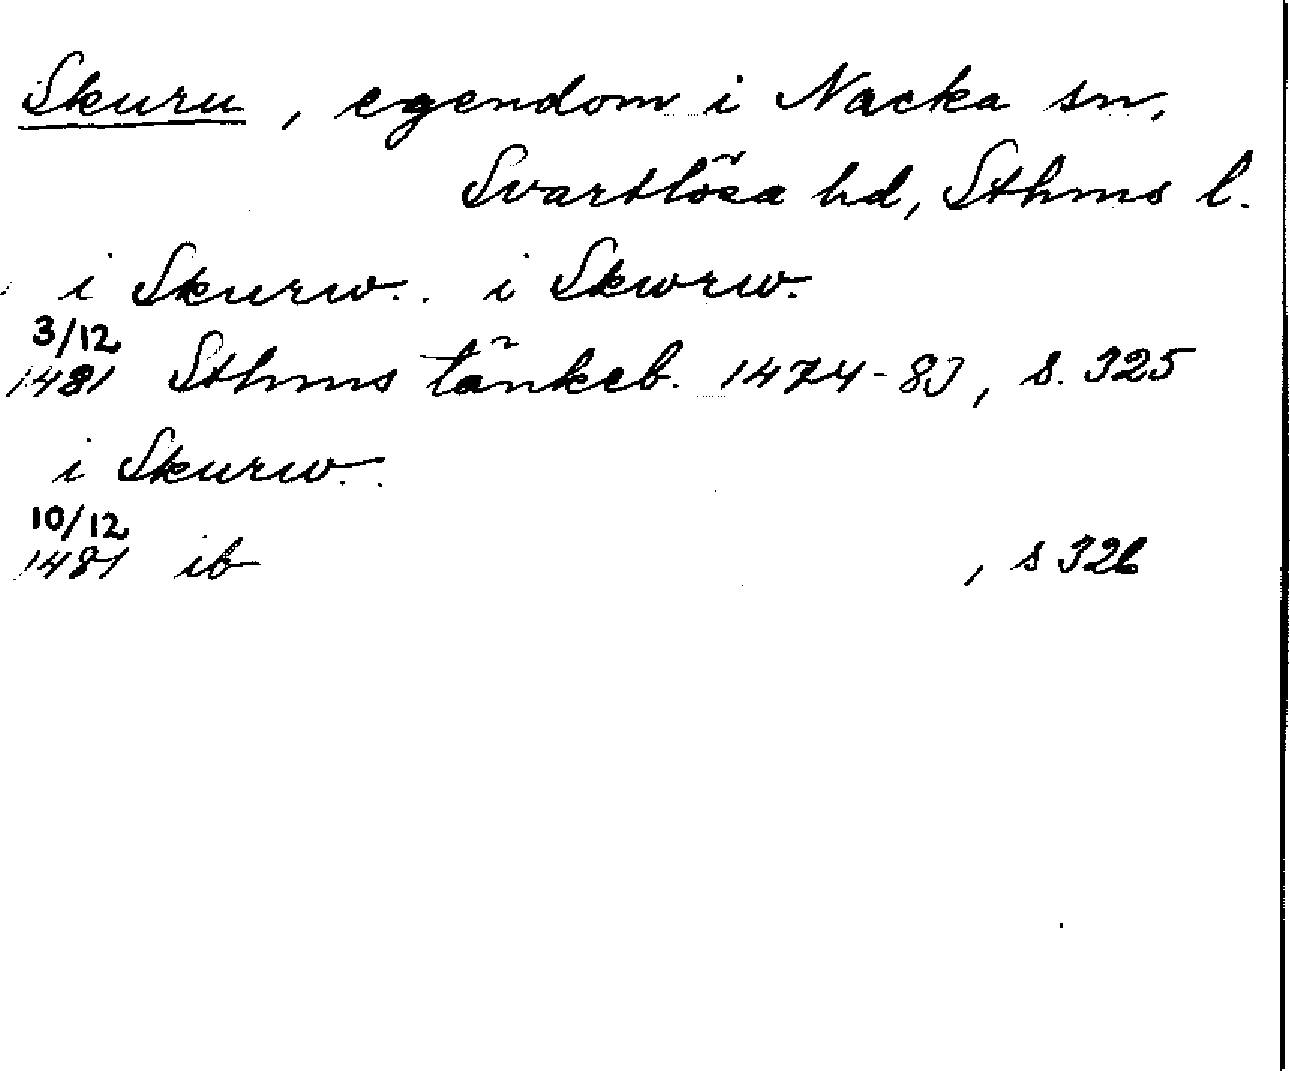 Skuru, egendom i Nacka sn,
Svartlösa hd, Sthms l.
i Skurw.. i Skwrw.
3/12
1481 Sthms tänkeb. 1474-83, s. 325
i Skurw.
10/12
1481 ib , s 326